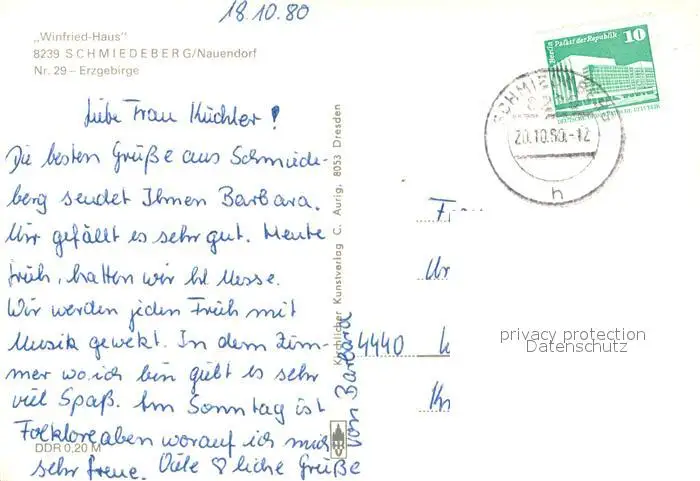 18.10.80
„Winfried-Haus"
8239 SCHMIEDEBERG/Nauendorf
Nr. 29 – Erzgebirge
Liebe Frau Küchler!
Die besten Grüße aus Schmiede-
berg sendet Ihnen Barbara.
Mir gefällt es sehr gut. Heute
früh, hatten wir hl Messe.
Wir werden jeden Früh mit
Musik gewekt. In dem Zim-
mer wo ich bin gült es sehr
viel Spaß. Am Sonntag ist
Folkloreaben worauf ich mich
sehr freue. Viele ♡liche Grüße
von Barbara
DDR 0,20 M
Kirchlicher Kunstverlag C. Aurig, 8053 Dresden
Berlin Palast der Republik 10
20.10.80.-12
h
4440
privacy protection
Datenschutz